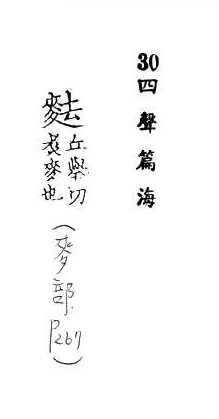 30 四聲篇海
麮
丘舉切
煮麥也
(麥部 P267)